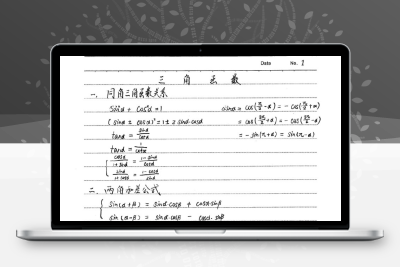 Date No. 1
三 角 函 数
一、同角三角函数关系
sin²α + cos²α = 1
sinα = cos(π/2 - α) = -cos(π/2 + α)
(sinα ± cosα)² = 1 ± 2 sinα·cosα
= cos(3π/2 + α) = -cos(3π/2 - α)
tanα = sinα/cosα
= -sin(π + α) = sin(π - α)
tanα = 1/cotα
cosα/(1+sinα) = (1-sinα)/cosα
sinα/(1+cosα) = (1-cosα)/sinα
二、两角和差公式
sin(α+β) = sinα·cosβ + cosα·sinβ
sin(α-β) = sinα·cosβ - cosα·sinβ